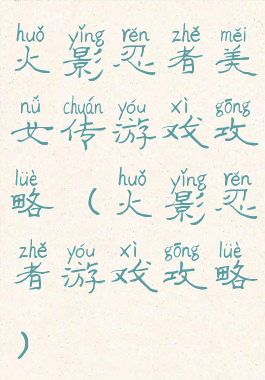 huǒ yǐng rěn zhě měi
火影忍者美
nǚ chuán yóu xì gōng
女传游戏攻
lüè huǒ yǐng rěn
略（火影忍
zhě yóu xì gōng lüè
者游戏攻略
）